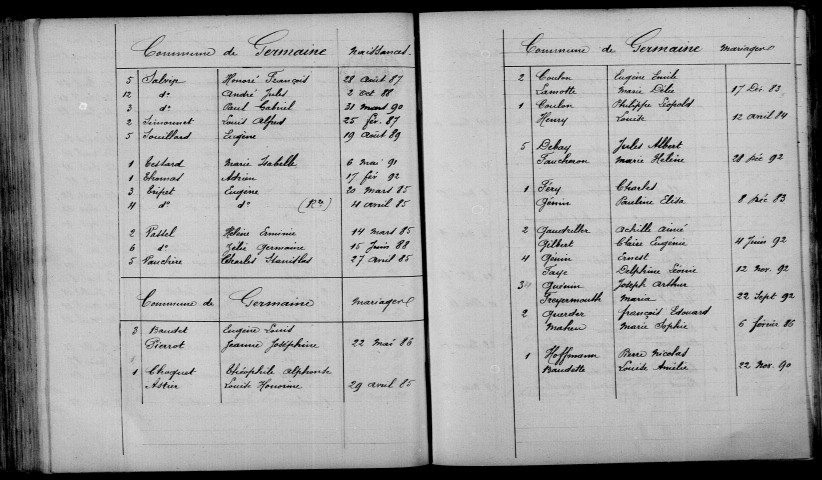 Commune de Germaine Naissances
5 Salvip Honoré François 28 août 87
12 do André Jules 2 oct 88
3 do Paul Gabriel 31 mars 90
2 Simonnet Louis Alfred 25 fév. 87
5 Souillard Eugène 19 août 89
1 Testard Marie Isabelle 6 mai 91
1 Thomas Adrien 17 fév 92
3 Tripet Eugène 20 mars 85
4 do do (Rto) 4 avril 85
2 Vassel Hélène Erminie 14 mars 85
6 do Zélie Germaine 15 juin 88
5 Vauchère Charles Stanislas 27 avril 85
Commune de Germaine Mariages
3 Baudet Eugène Louis
Pierrot Jeanne Joséphine 22 mai 86
1 Choquet Théophile Alphonse
Astier Louise Honorine 29 avril 85
Commune de Germaine Mariages
2 Coulon Eugène Emile
Lamotte Marie 17 Déc 83
1 Coulon Philippe Léopold
Henry Louise 12 avril 84
5 Debay Jules Albert
Faucheron Marie Hélène 28 Déc 92
1 Féry Charles
Génin Pauline Elisa 8 Déc 83
2 Achille Aimé
Gilbert Claire Eugénie 4 juin 92
4 Génin Ernest
Faye Delphine Léonie 12 Nov. 92
3 Guénin Joseph Arthur
Freyermouth Maria 22 Sept 92
2 Guerder François Edouard
Maheu Marie Sophie 6 février 86
1 Hoffmann Pierre Nicolas
Baudette Louise Amélie 22 Nov. 90